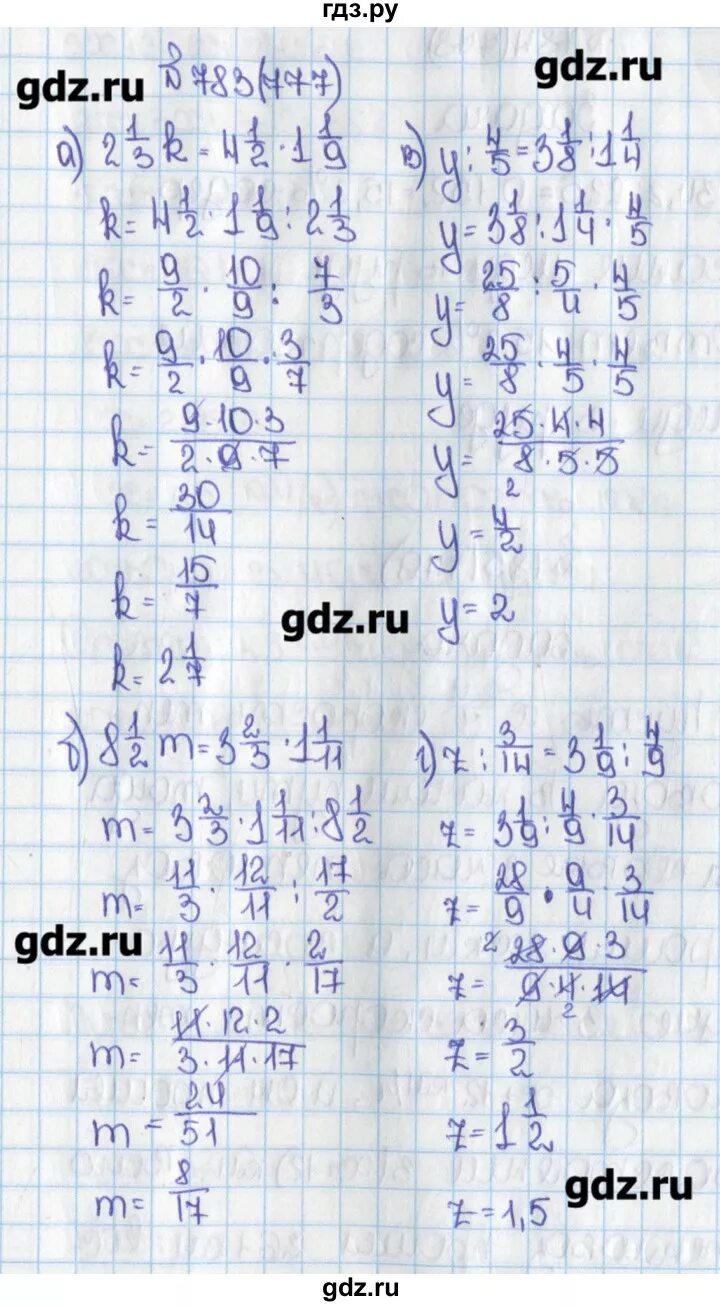 гдз.ру
gdz.ru
№ 783(777)
gdz.ru
а) 2 1/3 k = 4 1/2 · 1 1/9
k = 4 1/2 · 1 1/9 : 2 1/3
k = 9/2 · 10/9 : 7/3
k = 9/2 · 10/9 · 3/7
k = 9·10·3/2·9·7
k = 30/14
k = 15/7
k = 2 1/7
в) y : 4/5 = 3 1/8 : 1 1/4
y = 3 1/8 : 1 1/4 · 4/5
y = 25/8 : 5/4 · 4/5
y = 25/8 · 4/5 · 4/5
y = 25·4·4/8·5·5
2
y = 4/2
y = 2
gdz.ru
б) 8 1/2 m = 3 2/3 · 1 1/11
m = 3 2/3 · 1 1/11 : 8 1/2
m = 11/3 · 12/11 : 17/2
m = 11/3 · 12/11 · 2/17
m = 11·12·2/3·11·17
m = 24/51
m = 8/17
г) z : 3/14 = 3 1/9 : 4/9
z = 3 1/9 : 4/9 · 3/14
z = 28/9 · 9/4 · 3/14
z = 2 28·9·3/9·4·14
2
z = 3/2
z = 1 1/2
z = 1,5
gdz.ru
gdz.ru
gdz.ru